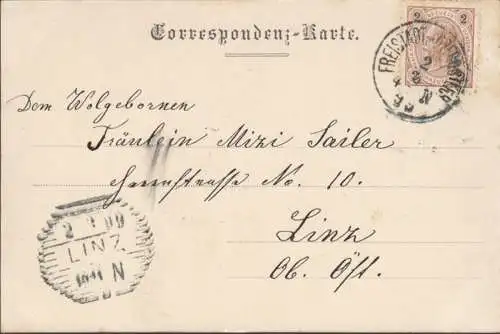 Correspondenz-Karte.
2 2
FREISTADT
2
3
4 N
99
Dem Wolgebornen
Fräulein Mizi Sailer
Herrnstrasse No. 10.
Linz
Ob. Öst.
2 3 99
LINZ
N